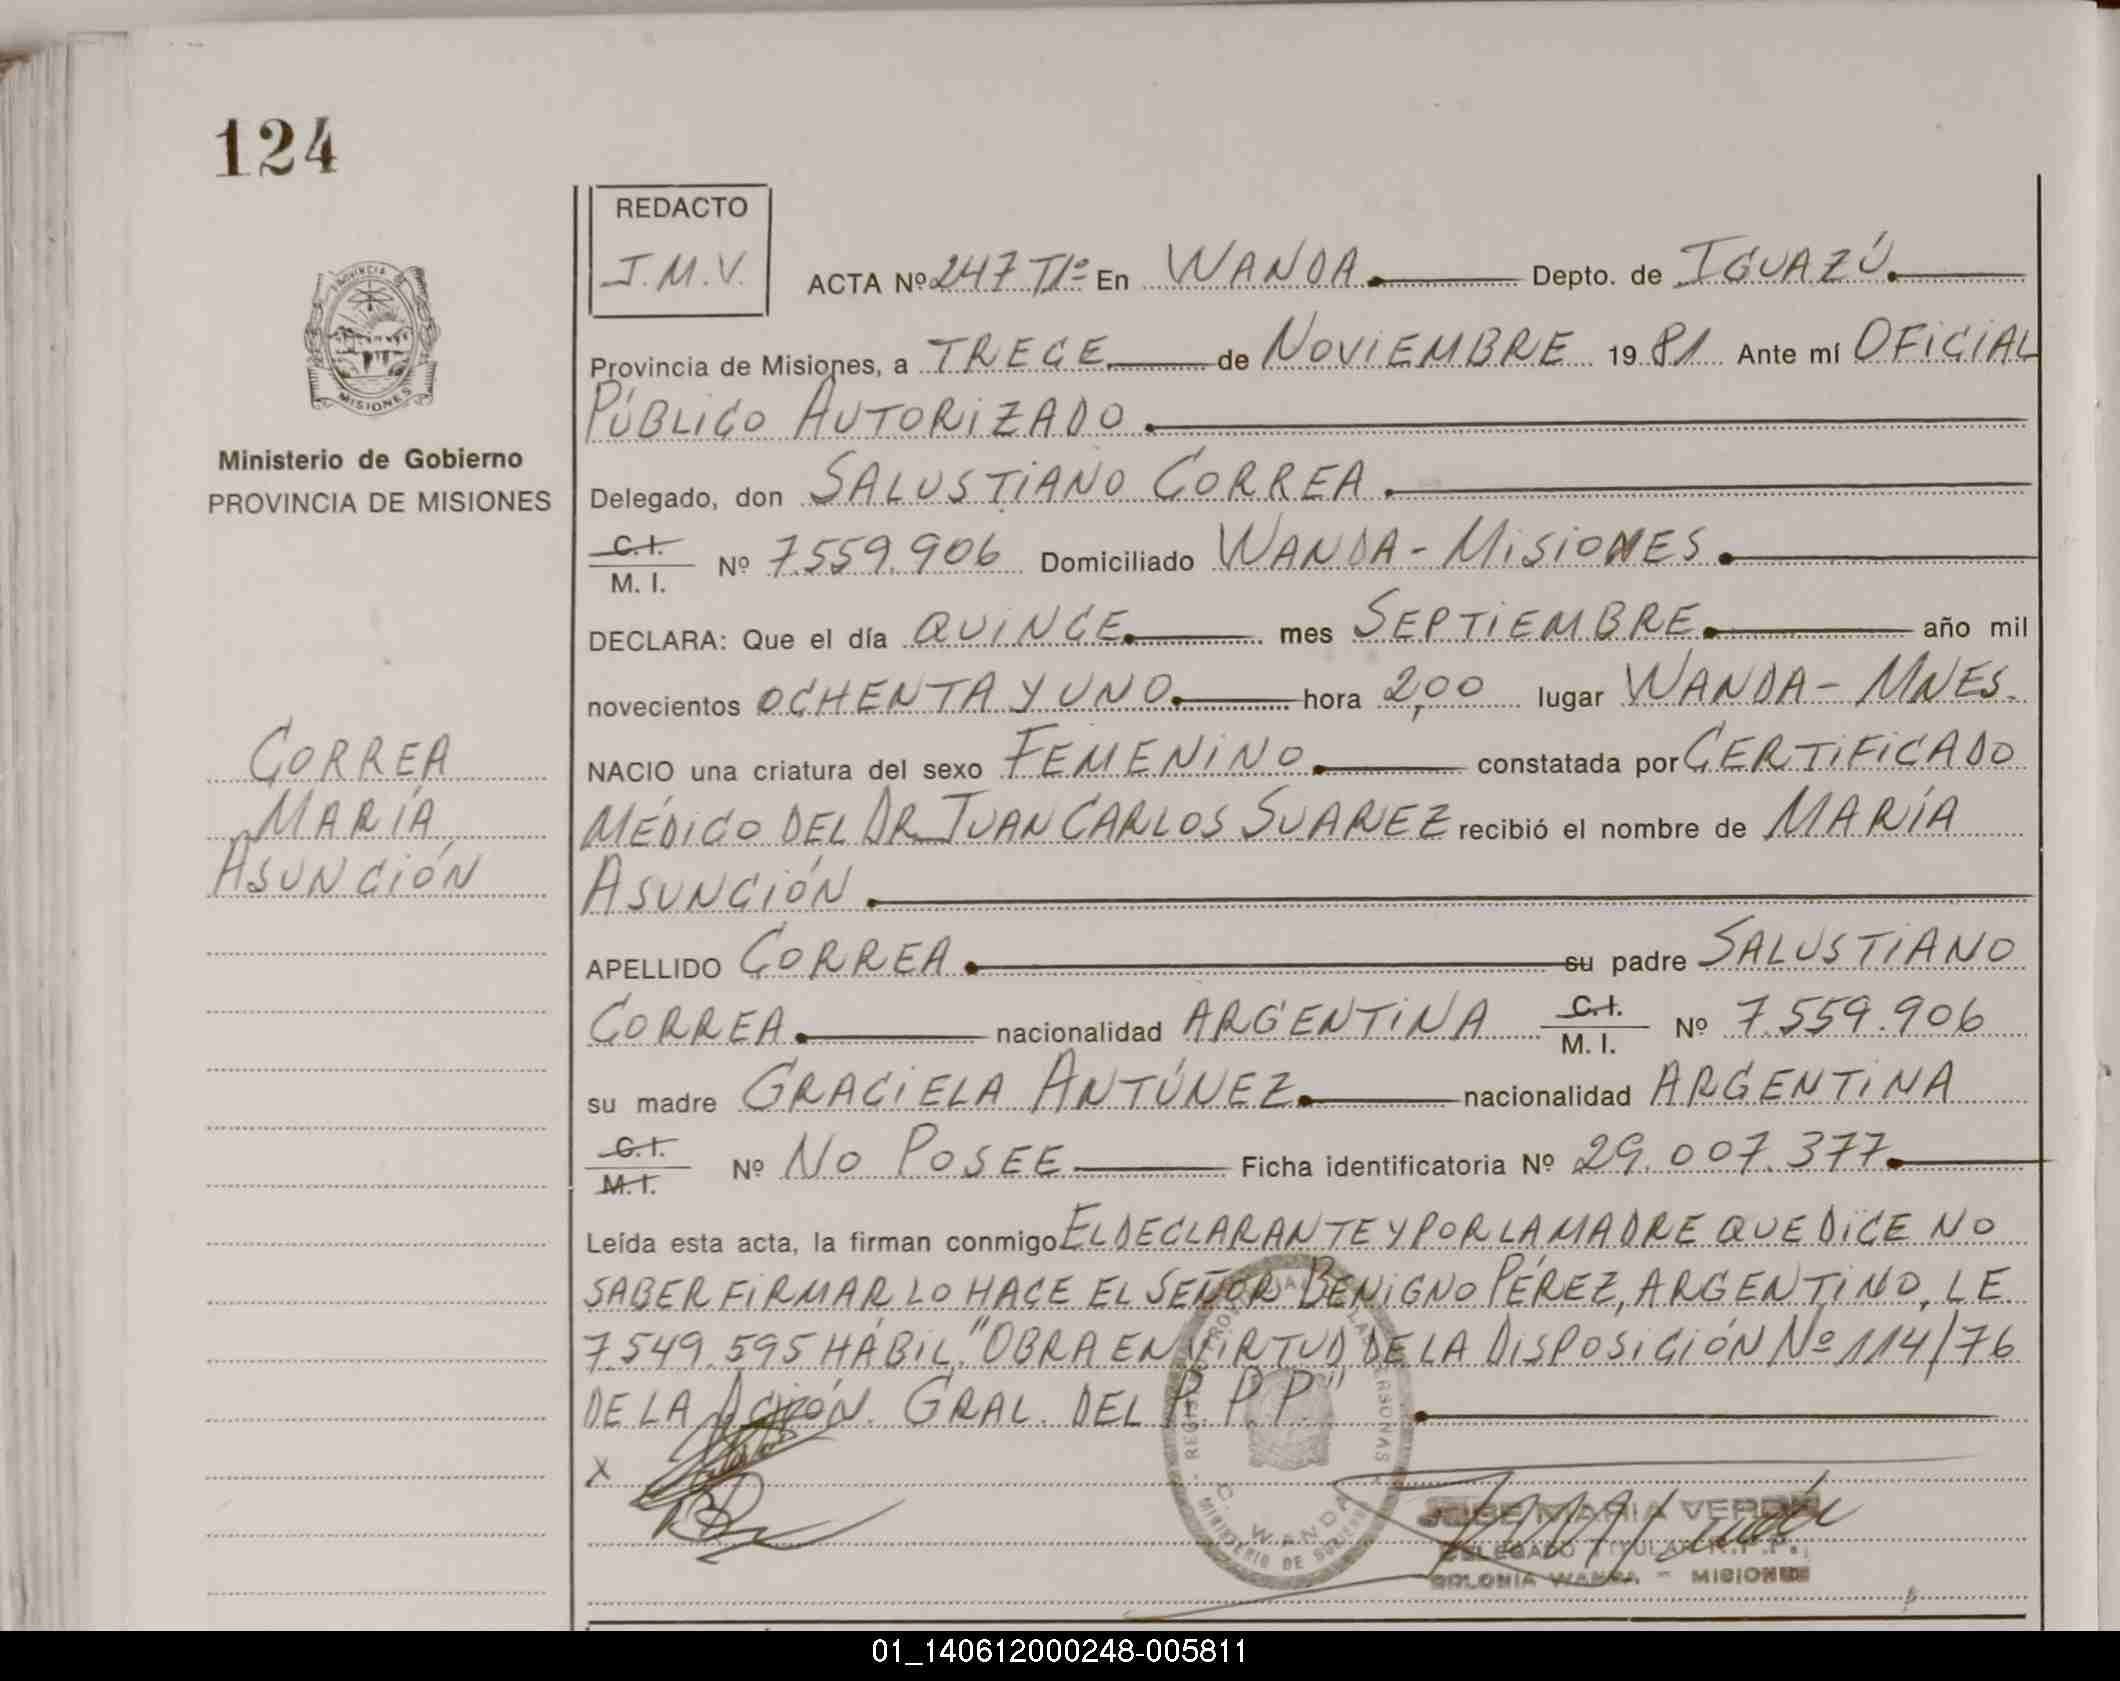 124
REDACTO
J.M.V.
PROVINCIA
MISIONES
Ministerio de Gobierno
PROVINCIA DE MISIONES
ACTA Nº 247 Tº En WANDA. Depto. de IGUAZÚ.
Provincia de Misiones, a TRECE de NOVIEMBRE 19 81 Ante mí OFICIAL
PÚBLICO AUTORIZADO.
Delegado, don SALUSTIANO CORREA.
C.I.
M. I. Nº 7.559.906 Domiciliado WANDA - MISIONES.
DECLARA: Que el día QUINCE. mes SEPTIEMBRE. año mil
novecientos OCHENTA Y UNO. hora 2,00 lugar WANDA - MNES.
CORREA
MARÍA
ASUNCIÓN
NACIO una criatura del sexo FEMENINO. constatada por CERTIFICADO
MÉDICO DEL DR. JUAN CARLOS SUAREZ recibió el nombre de MARÍA
ASUNCIÓN.
APELLIDO CORREA. su padre SALUSTIANO
CORREA. nacionalidad ARGENTINA C.I.
M. I. Nº 7.559.906
su madre GRACIELA ANTÚNEZ. nacionalidad ARGENTINA
C.I.
M.I. Nº NO POSEE Ficha identificatoria Nº 29.007.377.
Leída esta acta, la firman conmigo EL DECLARANTE Y POR LA MADRE QUE DICE NO
SABER FIRMAR LO HACE EL SEÑOR BENIGNO PÉREZ, ARGENTINO, LE
7.549.595 HÁBIL. "OBRA EN VIRTUD DE LA DISPOSICIÓN Nº 114/76
DE LA GRAL. DEL P. P. P."
X
C. WANDA
MINISTERIO DE GOBIERNO
JOSE MARIA VERDE
DELEGADO TITULAR R.P.P.
COLONIA WANDA - MISIONES
01_140612000248-005811